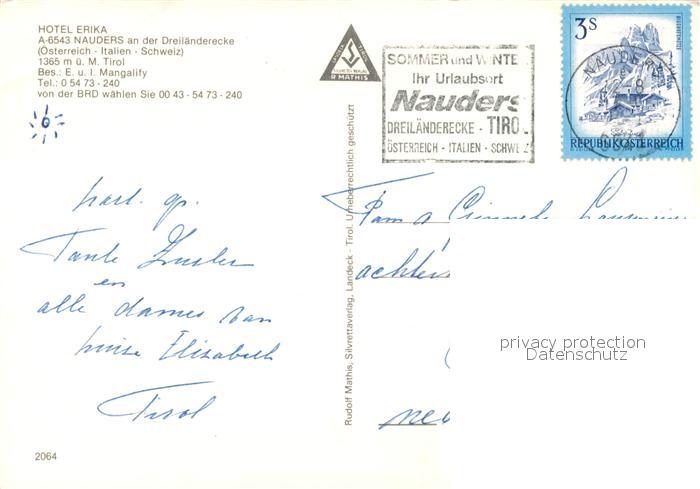 HOTEL ERIKA
A-6543 NAUDERS an der Dreiländerecke
(Österreich - Italien - Schweiz)
1365 m ü. M. Tirol
Bes.: E. u. I. Mangalify
Tel.: 0 54 73 - 240
von der BRD wählen Sie 00 43 - 54 73 - 240
R MATHIS
SOMMER und WINTE
Ihr Urlaubsort
Nauders
DREILÄNDERECKE - TIROL
ÖSTERREICH - ITALIEN - SCHWEIZ
3S
NAUDERS
REPUBLIK ÖSTERREICH
hart. gr.
Tante
en
alle dames van
huize Elisabeth
Tirol
Rudolf Mathis, Silvrettaverlag, Landeck - Tirol. Urheberrechtlich geschützt
Fam
achter
privacy protection
Datenschutz
2064